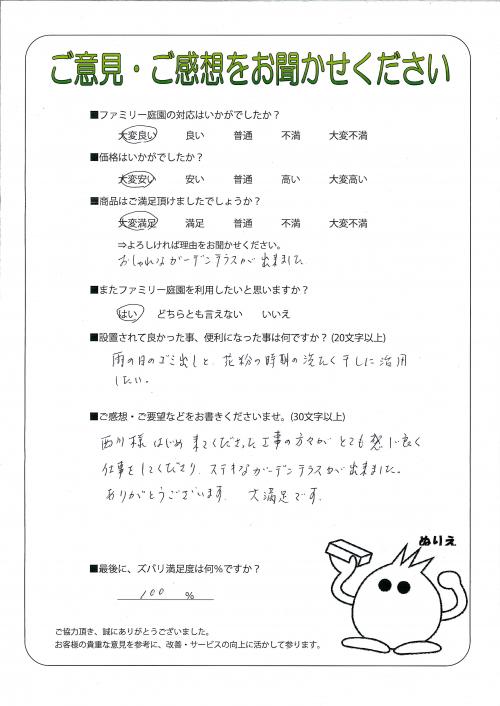 ご意見・ご感想をお聞かせください
■ファミリー庭園の対応はいかがでしたか？
大変良い 良い 普通 不満 大変不満
■価格はいかがでしたか？
大変安い 安い 普通 高い 大変高い
■商品はご満足頂けましたでしょうか？
大変満足 満足 普通 不満 大変不満
⇒よろしければ理由をお聞かせください。
おしゃれなガーデンテラスが出来ました
■またファミリー庭園を利用したいと思いますか？
はい どちらとも言えない いいえ
■設置されて良かった事、便利になった事は何ですか？(20文字以上)
雨の日のゴミ出しと、花粉の時期の洗たく干しに活用
したい。
■ご感想・ご要望などをお書きくださいませ。(30文字以上)
西川様はじめ 来てくださった工事の方々が とても感じ良く
仕事をしてくださり、ステキなガーデンテラスが出来ました。
ありがとうございます。 大満足です。
ぬりえ
■最後に、ズバリ満足度は何％ですか？
100 ％
ご協力頂き、誠にありがとうございました。
お客様の貴重な意見を参考に、改善・サービスの向上に活かして参ります。